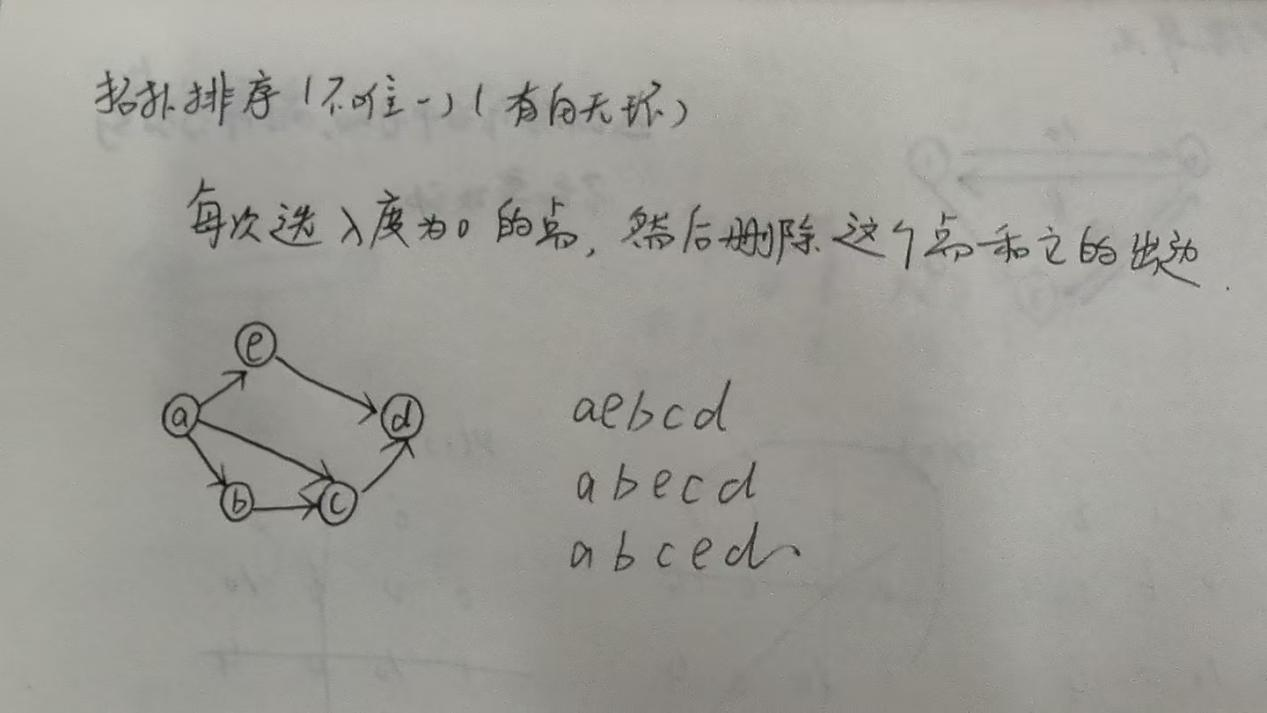 拓扑排序(不唯一)(有向无环)
每次选入度为0的点,然后删除这个点和它的出边.
e
a
d
b
c
aebcd
abecd
abced